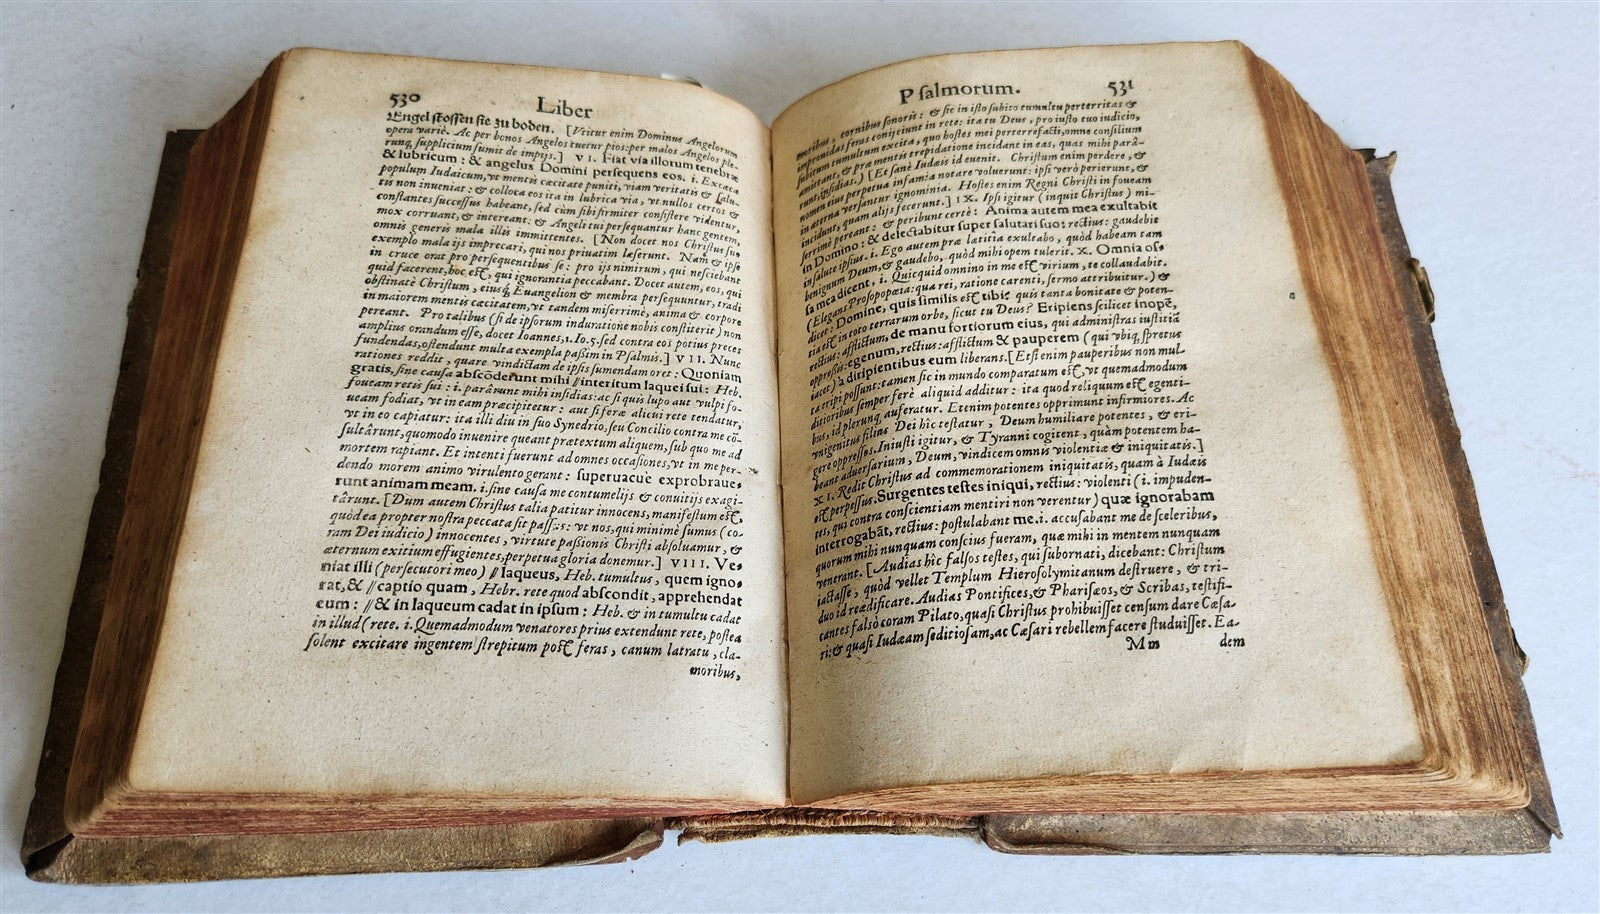 530 Liber
Engel stossen sie zu boden. [Vtitur enim Dominus Angelorum
opera variè. Ac per bonos Angelos tuetur pios: per malos Angelos ple-
runq; supplicium sumit de impijs.] VI. Fiat via illorum tenebræ
& lubricum: & angelus Domini persequens eos. i. Excæca
populum Iudaicum, vt mentis cæcitate puniti, viam veritatis & salu-
tis non inueniat: & colloca eos ita in lubrica via, vt nullos certos &
constantes successus habeant, sed cùm sibi firmiter consistere videntur,
mox corruant, & intereant: & Angeli tui persequantur hanc gentem,
omnis generis mala illis immittentes. [Non docet nos Christus suo
exemplo mala ijs imprecari, qui nos priuatim læserunt. Nam & ipse
in cruce orat pro persequentibus se: pro ijs nimirum, qui nesciebant
quid facerent, hoc est, qui ignorantia peccabant. Docet autem, eos, qui
obstinatè Christum, eiusq́; Euangelion & membra persequuntur, tradi
in maiorem mentis cæcitatem, vt tandem miserrimè, anima & corpore
pereant. Pro talibus (si de ipsorum induratione nobis constiterit) non
amplius orandum esse, docet Ioannes, 1. Io. 5. sed contra eos potius preces
fundendas, ostendunt multa exempla passim in Psalmis.] VII. Nunc
rationes reddit, quare vindictam de ipsis sumendam oret: Quoniam
gratis, sine causa abscōderunt mihi // interitum laquei sui: Heb.
foueam retis sui: i. parârunt mihi insidias: ac si quis lupo aut vulpi fo-
ueam fodiat, vt in eam præcipitetur: aut si feræ alicui rete tendatur,
vt in eo capiatur: ita illi diu in suo Synedrio, seu Concilio contra me cō-
sultârunt, quomodo inuenire queant prætextum aliquem, sub quo me ad
mortem rapiant. Et intenti fuerunt ad omnes occasiones, vt in me per-
dendo morem animo virulento gerant: superuacuè exprobraue-
runt animam meam. i. sine causa me contumelijs & conuitijs exagi-
târunt. [Dum autem Christus talia patitur innocens, manifestum est,
quòd ea propter nostra peccata sit passus: vt nos, qui minimè sumus (co-
ram Dei iudicio) innocentes, virtute passionis Christi absoluamur, &
æternum exitium effugientes, perpetua gloria donemur.] VIII. Ve-
niat illi (persecutori meo) // laqueus, Heb. tumultus, quem igno-
rat, & // captio quam, Hebr. rete quod abscondit, apprehendat
eum: // & in laqueum cadat in ipsum: Heb. & in tumultu cadat
in illud (rete. i. Quemadmodum venatores prius extendunt rete, postea
solent excitare ingentem strepitum post feras, canum latratu, cla-
moribus,
Psalmorum. 531
moribus, cornibus sonoris: & sic in isto subito tumultu perterritas &
improuidas feras conijciunt in rete: ita tu Deus, pro iusto tuo iudicio,
subitum tumultum excita, quo hostes mei perterrefacti, omne consilium
amittant, & præ mentis trepidatione incidant in eas, quas mihi parâ-
runt, insidias.) [Et sanè Iudæis id euenit. Christum enim perdere, &
nomen eius perpetua infamia notare voluerunt: ipsi verò perierunt, &
in æterna versantur ignominia. Hostes enim Regni Christi in foueam
incidunt, quam alijs fecerunt.] IX. Ipsi igitur (inquit Christus) mi-
serimè pereant: & peribunt certè: Anima autem mea exultabit
in Domino: & delectabitur super salutari suo: rectius: gaudebit
in salute ipsius. i. Ego autem præ lætitia exultabo, quòd habeam tam
benignum Deum, & gaudebo, quòd mihi opem tulerit. X. Omnia os-
sa mea dicent, i. Quicquid omnino in me est virium, te collaudabit.
(Elegans Prosopopæia: qua rei, ratione carenti, sermo attribuitur.) &
dicet: Domine, quis similis est tibi? quis tanta bonitate & poten-
tia est in toto terrarum orbe, sicut tu Deus? Eripiens scilicet inopē,
rectius: afflictum, de manu fortiorum eius, qui administras iustitiā
oppressis: egenum, rectius: afflictum & pauperem (qui vbiq; spretus
iacet) à diripientibus eum liberans. [Etsi enim pauperibus non mul-
ta eripi possunt: tamen sic in mundo comparatum est, vt quemadmodum
ditioribus semper ferè aliquid additur: ita quod reliquum est egenti-
bus, id plerunq; auferatur. Etenim potentes opprimunt infirmiores. Ac
vnigenitus filius Dei hic testatur, Deum humiliare potentes, & eri-
gere oppressos. Iniusti igitur, & Tyranni cogitent, quàm potentem ha-
beant aduersarium, Deum, vindicem omnis violentiæ & iniquitatis.]
XI. Redit Christus ad commemorationem iniquitatis, quam à Iudæis
est perpessus. Surgentes testes iniqui, rectius: violenti (i. impuden-
tes, qui contra conscientiam mentiri non verentur) quæ ignorabam
interrogabāt, rectius: postulabant me. i. accusabant me de sceleribus,
quorum mihi nunquam conscius fueram, quæ mihi in mentem nunquam
venerant. [Audias hîc falsos testes, qui subornati, dicebant: Christum
iactasse, quòd vellet Templum Hierosolymitanum destruere, & tri-
duo id reædificare. Audias Pontifices, & Pharisæos, & Scribas, testifi-
cantes falsò coram Pilato, quasi Christus prohibuisset censum dare Cæsa-
ri: & quasi Iudæam seditiosam, ac Cæsari rebellem facere studuisset. Ea-
Mm dem